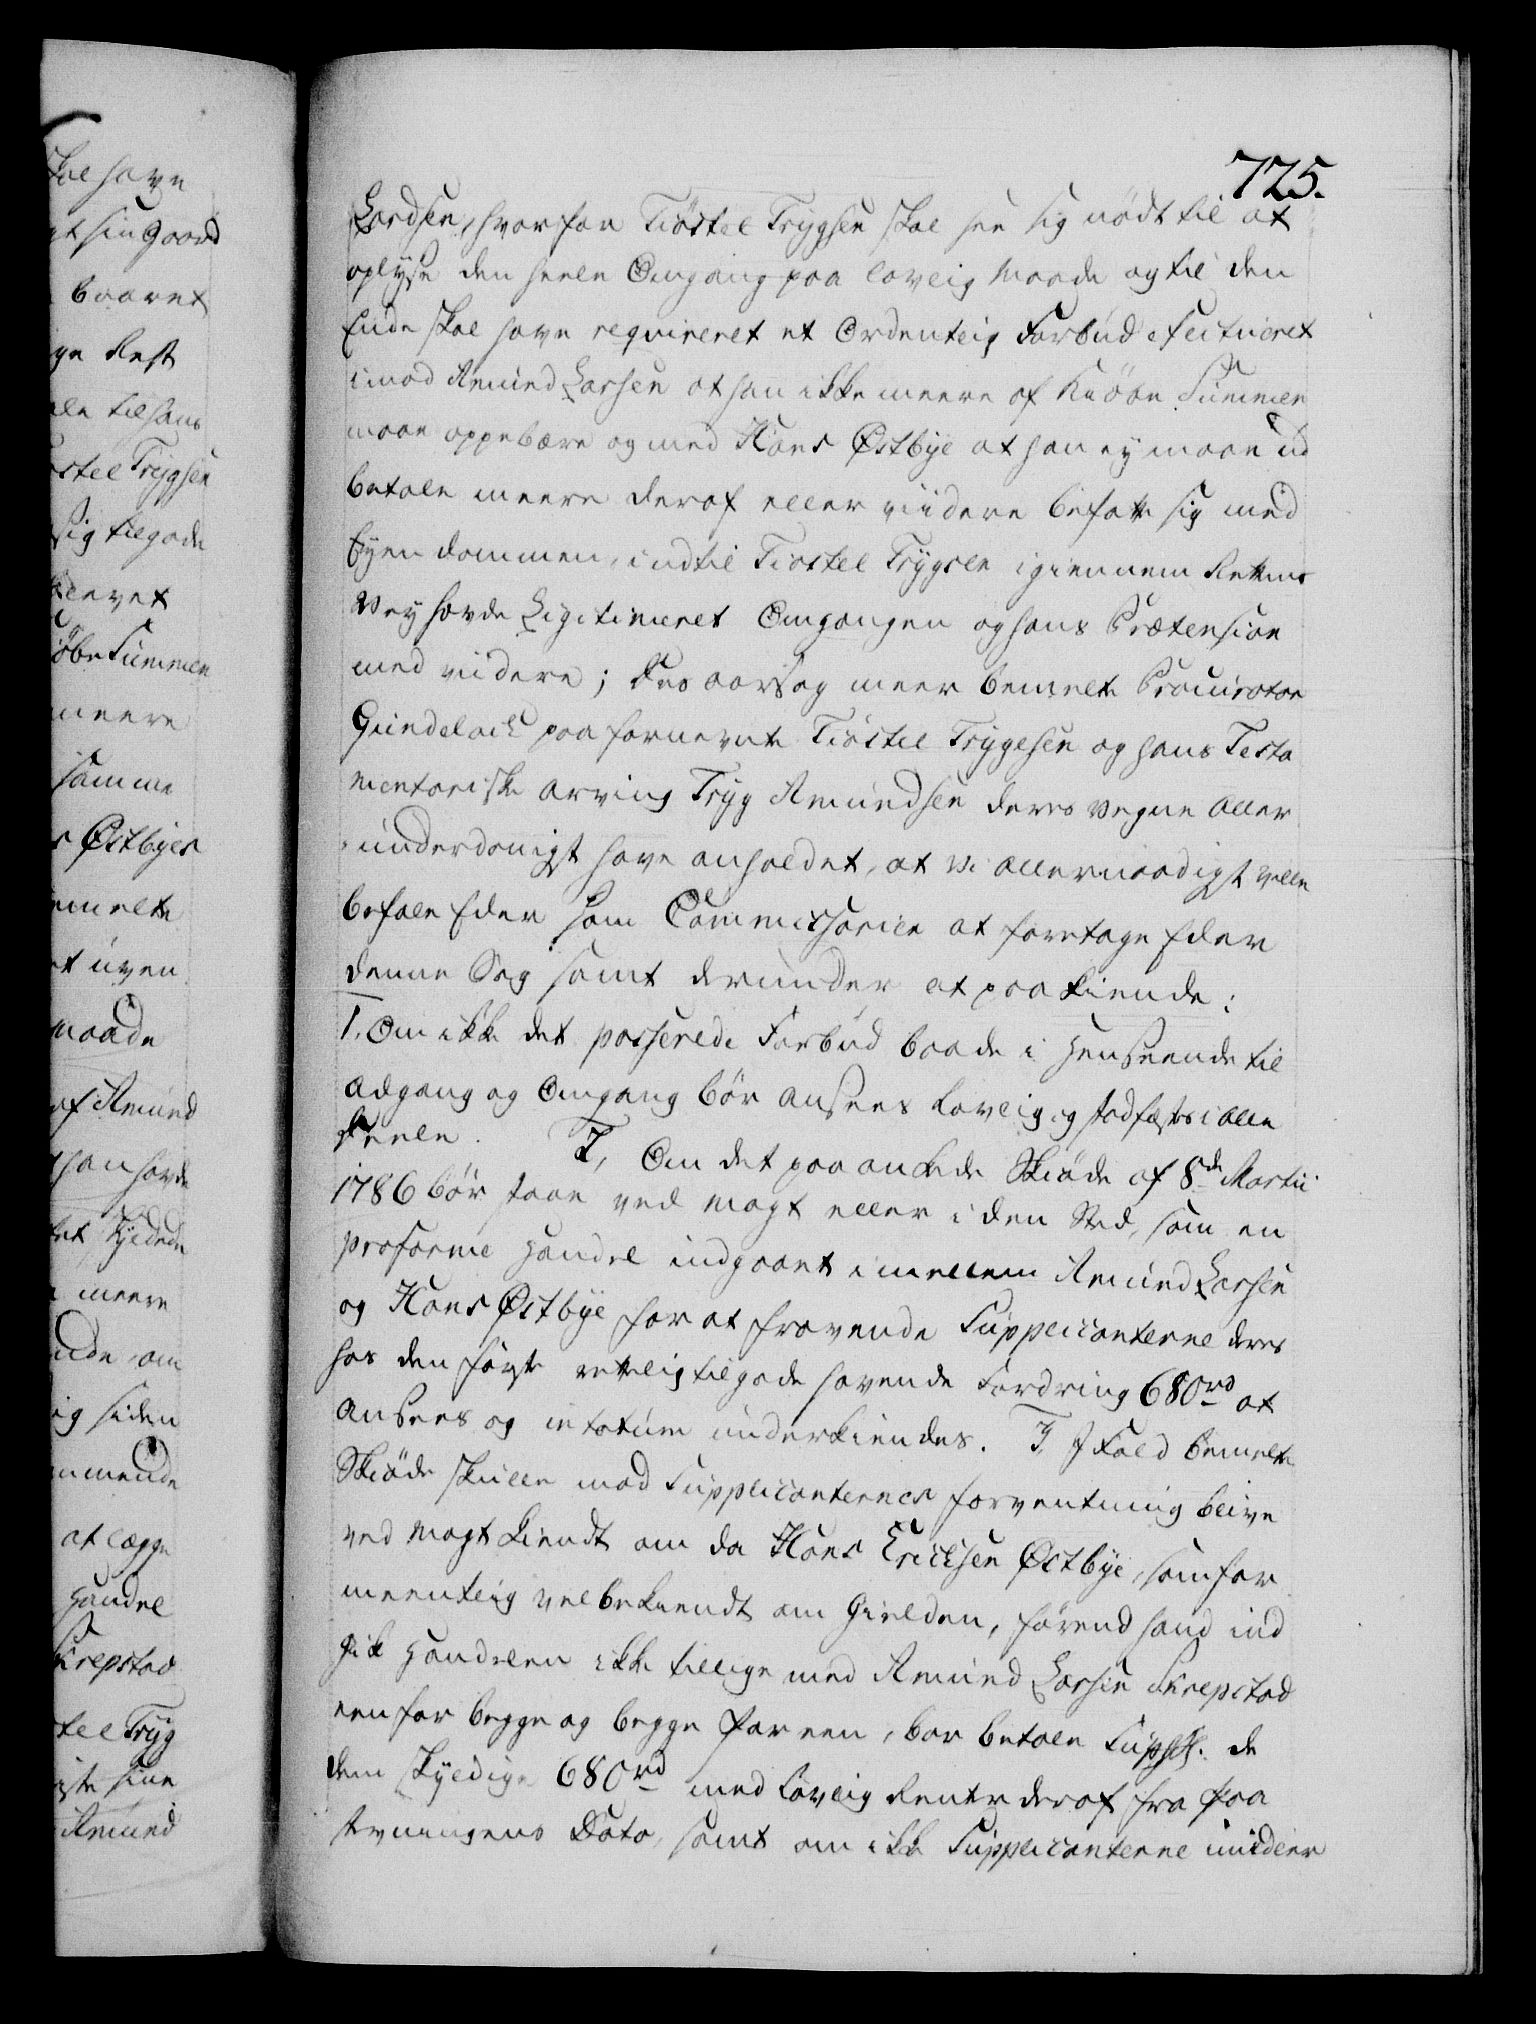 725.
Lardsen, hvorfor Tiøstel Trygsen skal see sig nødt til at
oplyse den heele Omgang paa lovlig Maade og til den
Ende skal have reqvireret et Ordentlig Forbud efectueret
imod Amund Larsen at han ikke meere af Kiøbe Summen
maae oppebære og med Hans Østbye at han ey maae ud
betale meere deraf eller viidere befatte sig med
Eyendommen, indtil Tiostel Trygsen igiennem Rettens
Vey havde Legitimeret Omgangen og hans Prætension
med viidere; Des aarsag meer bemelte Procurator
Gundelach paa fornevnte Tiøstel Trygesen og hans Testa
mentariske Arving Tryg Amundsen deres Vegne Aller
underdanigst have anholdet, at Vi Allernaadigst ville
befale Eder som Commissarier at foretage Eder
denne Sag samt derunder at paakiende:
1. Om ikke det passerede Forbud baade i Henseende til
Adgang og Omgang bør ansees Lovlig og stadfæstes i alle
Deele. 2, Om det paaankede Skiøde af 8de Martii
1786 bør staae ved Magt eller i den Sted, som en
proforme Handel indgaaet imellem Amund Larsen
og Hans Østbye for at fravende Suppleicanterne deres
hos den første rettelig tilgode havende Fordring 680rd at
ansees og in totum underkiendes. 3, I Fald bemelte
Skiøde skulle mod Supplicanternes forventning blive
ved Magt kiendt om da Hans Ericksen Østbye, som for
meentlig vel bekiendt om Gielden, førend hand ind
gik Handelen ikke tillige med Amund Larsen Skrepstad
een for begge og begge for een, bør betale Supplk. de
dem skyldige 680rd med lovlig Rente deraf fra paa
stevningens Dato, samt om ikke Supplicanterne imidler